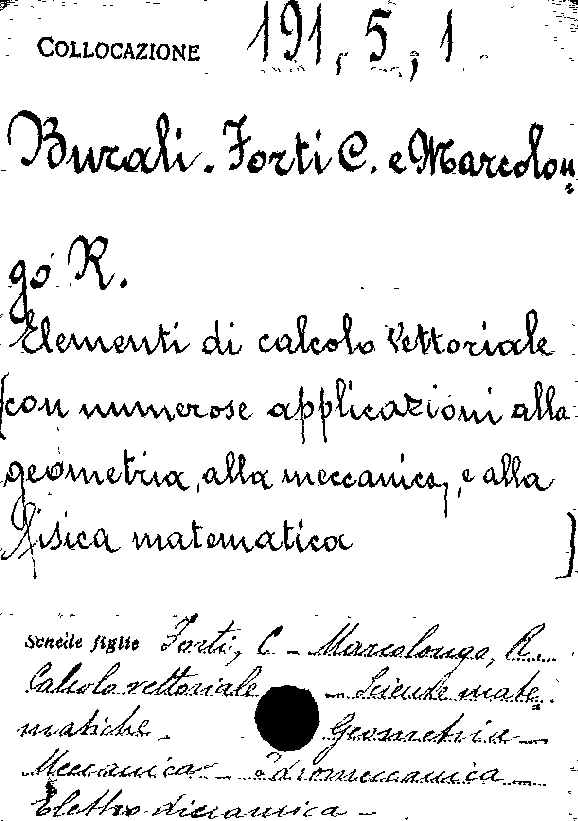 COLLOCAZIONE 191, 5, 1
Burali-Forti C. e Marcolon=
go R.
Elementi di calcolo vettoriale
[con numerose applicazioni alla
geometria, alla meccanica, e alla
fisica matematica ]
Schede figlie Forti, C - Marcolongo, R.
Calcolo vettoriale - Scienze mate=
matiche - Geometria -
Meccanica - Idromeccanica -
Elettrodinamica -